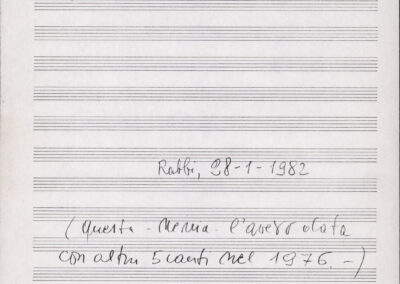 Rabbi, 28-1-1982
(Questa - Nenia - l'avevo data
con altri 5 canti nel 1976. -)